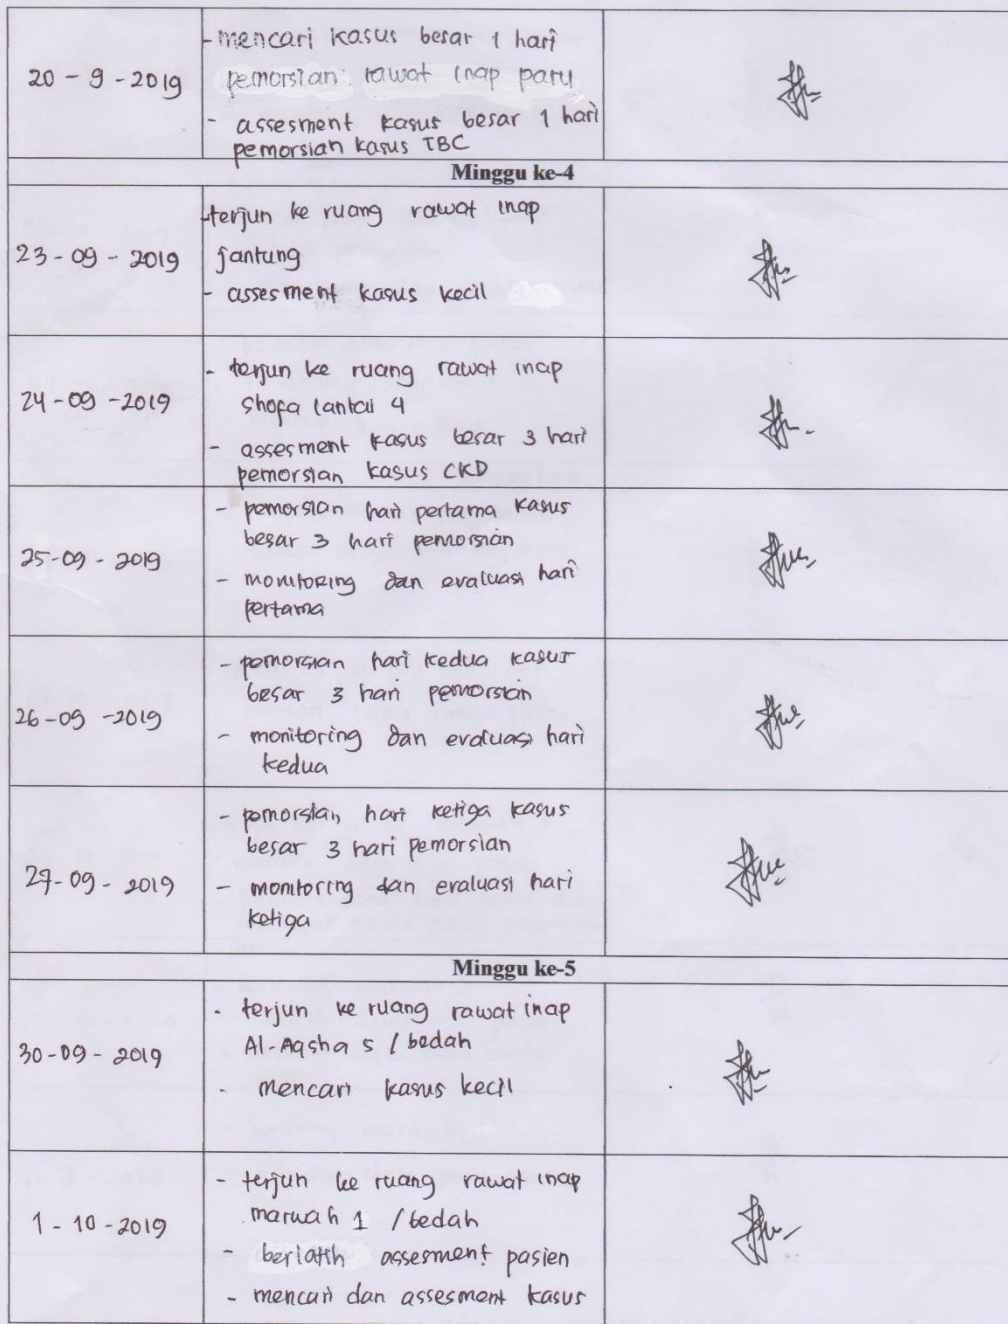 20 - 9 - 2019
- mencari kasus besar 1 hari
pemorsian rawat inap paru
- assesment kasus besar 1 hari
pemorsian kasus TBC
Minggu ke-4
23 - 09 - 2019
- terjun ke ruang rawat inap
jantung
- assesment kasus kecil
24 - 09 - 2019
- terjun ke ruang rawat inap
shofa lantai 4
- assesment kasus besar 3 hari
pemorsian kasus CKD
25 - 09 - 2019
- pemorsian hari pertama kasus
besar 3 hari pemorsian
- monitoring dan evaluasi hari
pertama
26 - 09 - 2019
- pemorsian hari kedua kasus
besar 3 hari pemorsian
- monitoring dan evaluasi hari
kedua
27 - 09 - 2019
- pemorsian hari ketiga kasus
besar 3 hari pemorsian
- monitoring dan evaluasi hari
ketiga
Minggu ke-5
30 - 09 - 2019
- terjun ke ruang rawat inap
Al-Aqsha 5 / bedah
- mencari kasus kecil
1 - 10 - 2019
- terjun ke ruang rawat inap
marwah 1 / bedah
- berlatih assesment pasien
- mencari dan assesment kasus